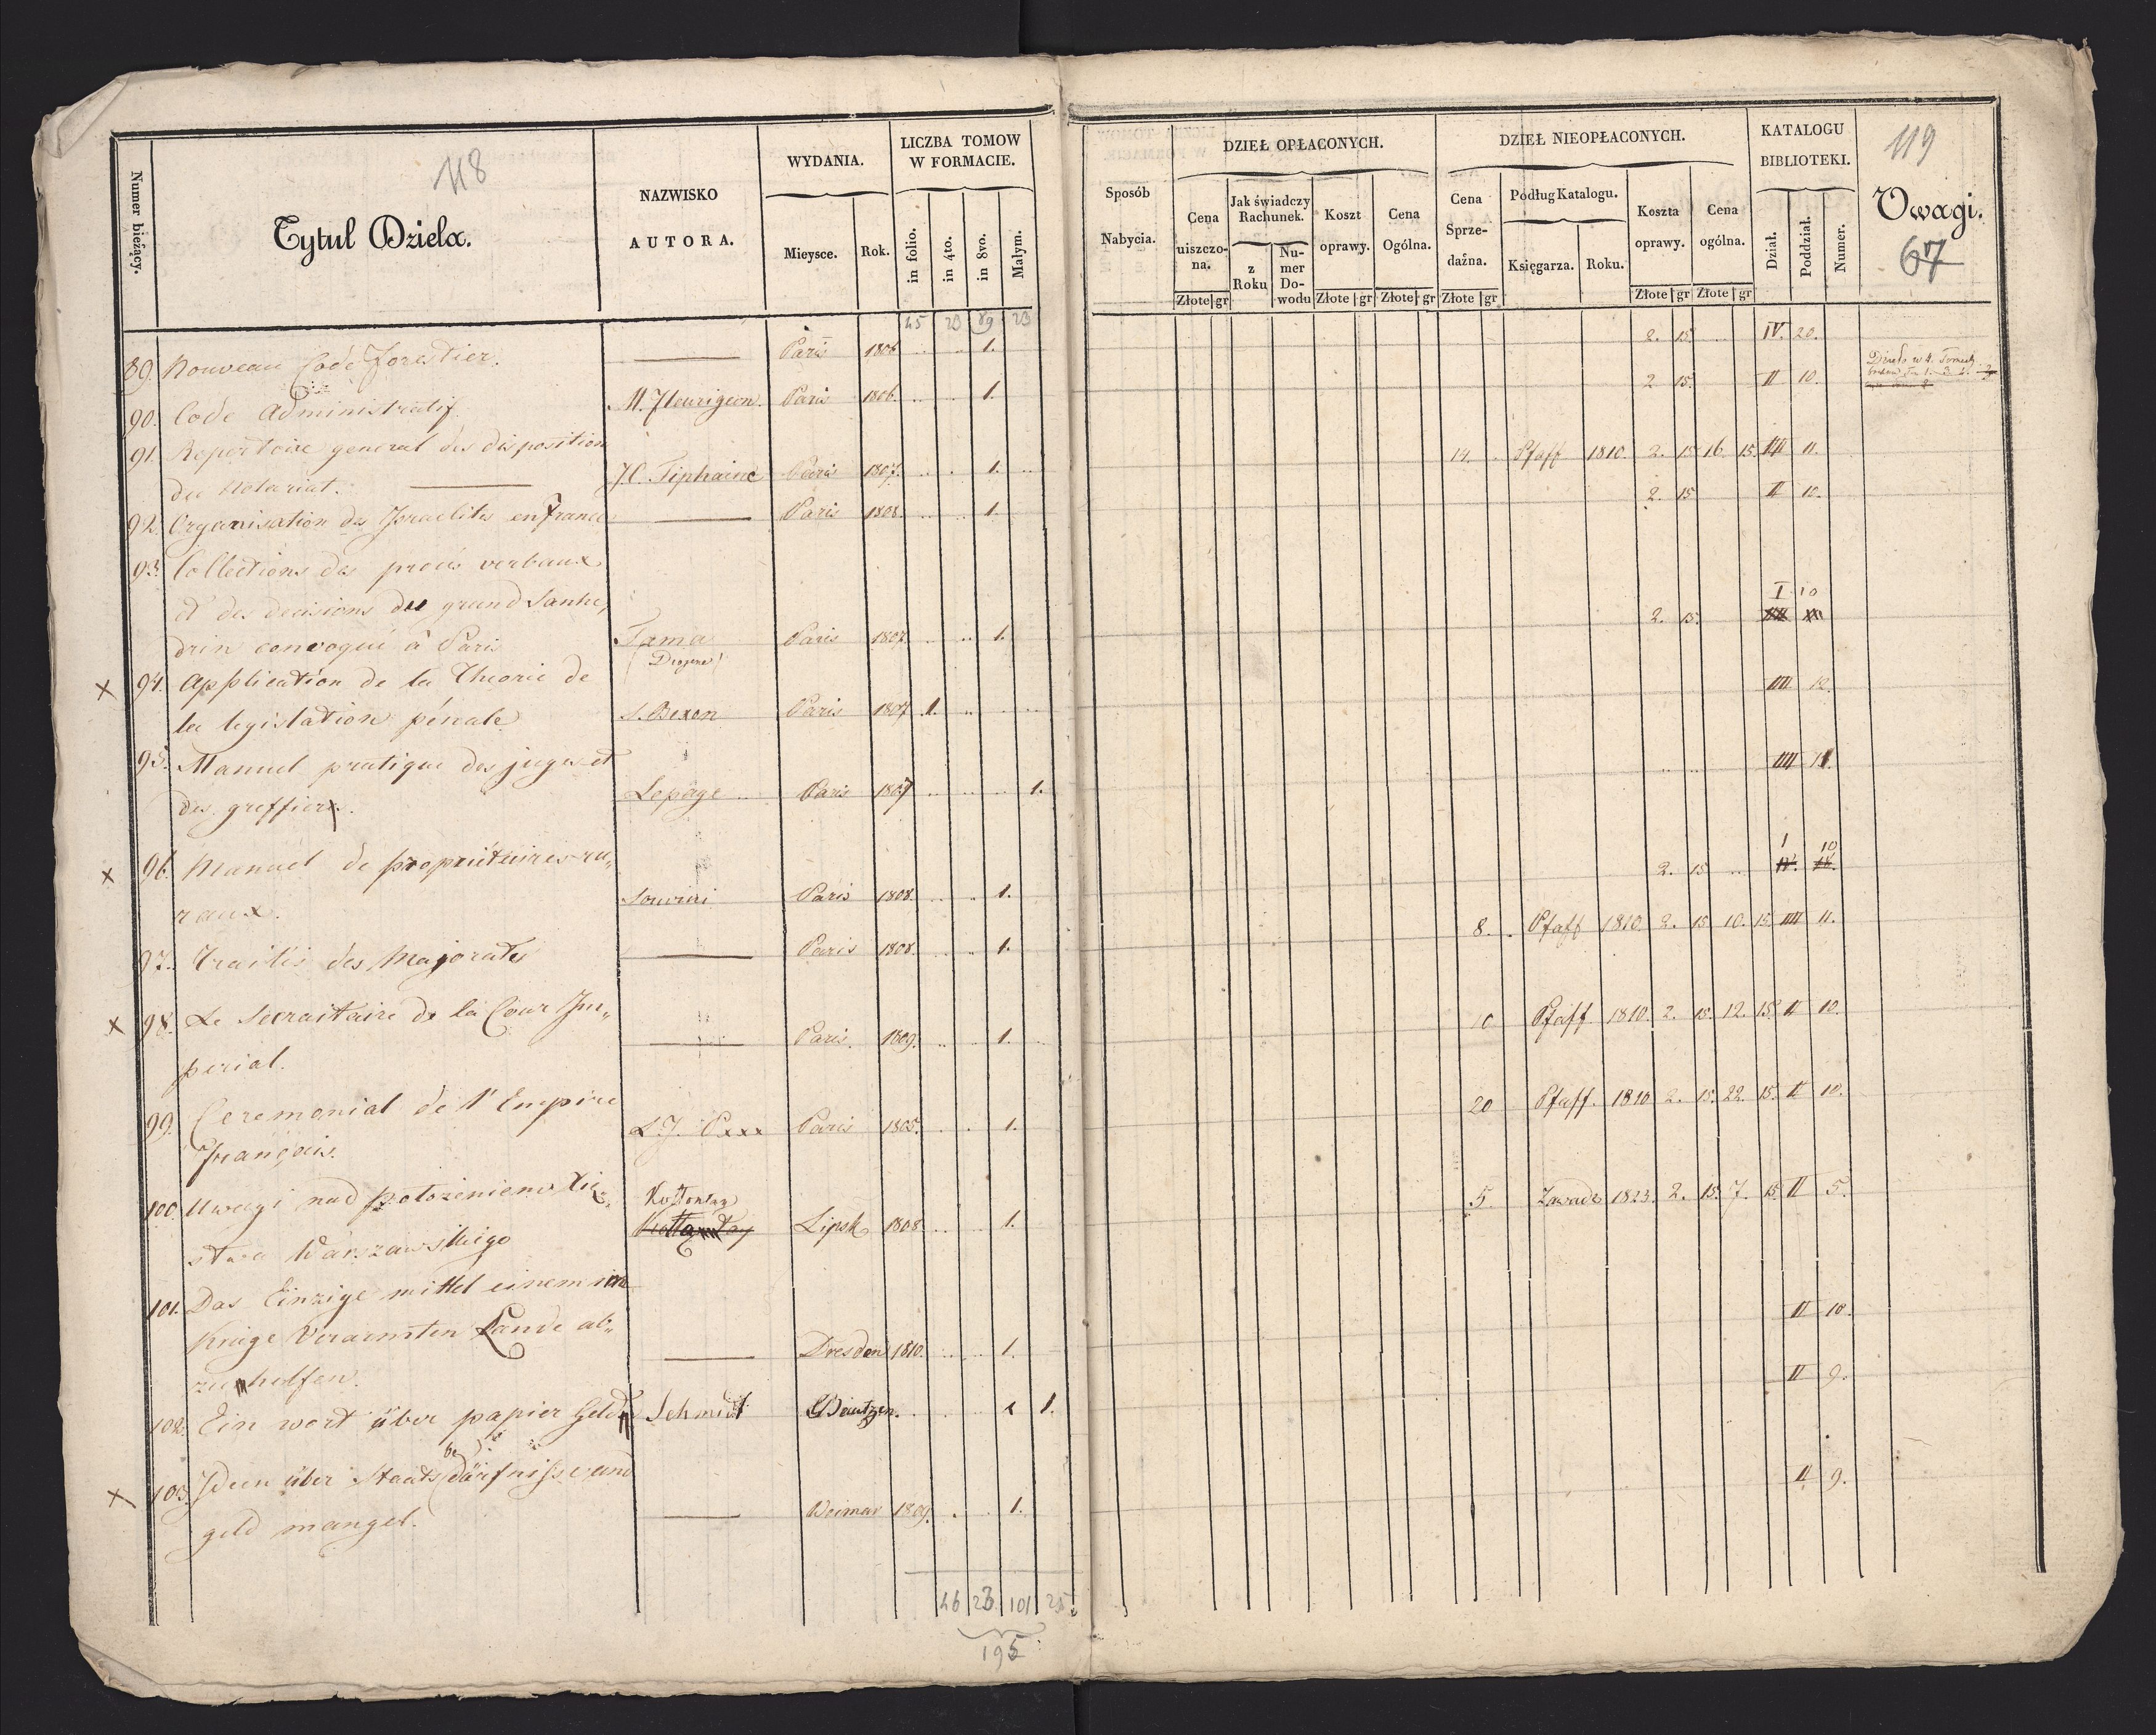 118
Numer bieżący.
Tytuł Dzieła.
NAZWISKO
AUTORA.
WYDANIA.
Mieysce. Rok.
LICZBA TOMOW
W FORMACIE.
in folio. in 4to. in 8vo. Małym.
45 23 89 23
89. Nouveau Code Forestier. Paris 1806 1.
90. Code Administratif M. Fleurigeon. Paris 1806. 1.
91. Repertoire general des disposition
du Notariat. J.C. Tiphaine Paris 1807. 1.
92. Organisation des Israelites en France Paris 1808. 1.
93. Collections des procés verbaux
et des decisions du grand Sanhe,
drin convoqué à Paris Tama Paris 1807. 1.
(Diogene)
× 94. Application de la Theorie de
la legislation pénale S. Bexon Paris 1807 1.
95. Manuel pratique des juges et
des greffiers. Lepage Paris 1807 1.
× 96. Manuel de propriétaires ru„
raux. Paris 1808. 1.
97. Traités des Majorats Paris 1808. 1.
× 98. Le Secraitaire de la Cour Im„
perial. Paris. 1809. 1.
99. Ceremonial de l'Empire
français. L.J. Pxxx Paris 1805. 1.
100. Uwagi nad położeniem Xię„
stwa Warszawskiego Lipsk 1808 1.
101. Das Einzige mittel einem im
Kriege Verarmten Lande ab„
zuhelfen. Dresden 1810. 1.
102. Ein wort über papier Geld Schmidt Bautzen. 1.
× 103. Ideen über Staats bedürfnisse und
geld mangel. Weimar 1809. 1.
46 23 101 25
195
119
Sposób
Nabycia.
DZIEŁ OPŁACONYCH.
Cena
uiszczo-
na.
Złote gr
Jak świadczy
Rachunek.
z
Roku
Nu-
mer
Do-
wodu
Koszt
oprawy.
Złote gr
Cena
Ogólna.
Złote gr
DZIEŁ NIEOPŁACONYCH.
Cena
Sprze-
daźna.
Złote gr
Podług Katalogu.
Księgarza. Roku.
Koszta
oprawy.
Złote gr
Cena
ogólna.
Złote gr
KATALOGU
BIBLIOTEKI.
Dział. Poddział. Numer.
Uwagi.
67
2. 15 IV. 20.
2 15. II 10. Dzieło w 4. Tomach
14. Pfaff 1810. 2. 15 16. 15. III 11.
2. 15 II 10.
I 10
2. 15.
IIII 12.
IIII 11.
I 10
2. 15
8. Pfaff 1810 2. 15 10. 15. IIII 11.
10 Pfaff 1810. 2. 15. 12. 15. II 10.
20 Pfaff. 1810 2. 15. 22. 15. II 10.
5 Zawadz 1823. 2. 15. 7. 15. II 5.
II 10.
II 9.
II 9.